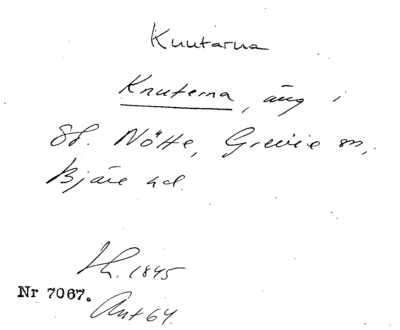 Knutarna
Knuterna, äng i
St. Nötte, Grevie sn,
Bjäre hd.
Lh. 1845
Nr 7067.
Ant 64.